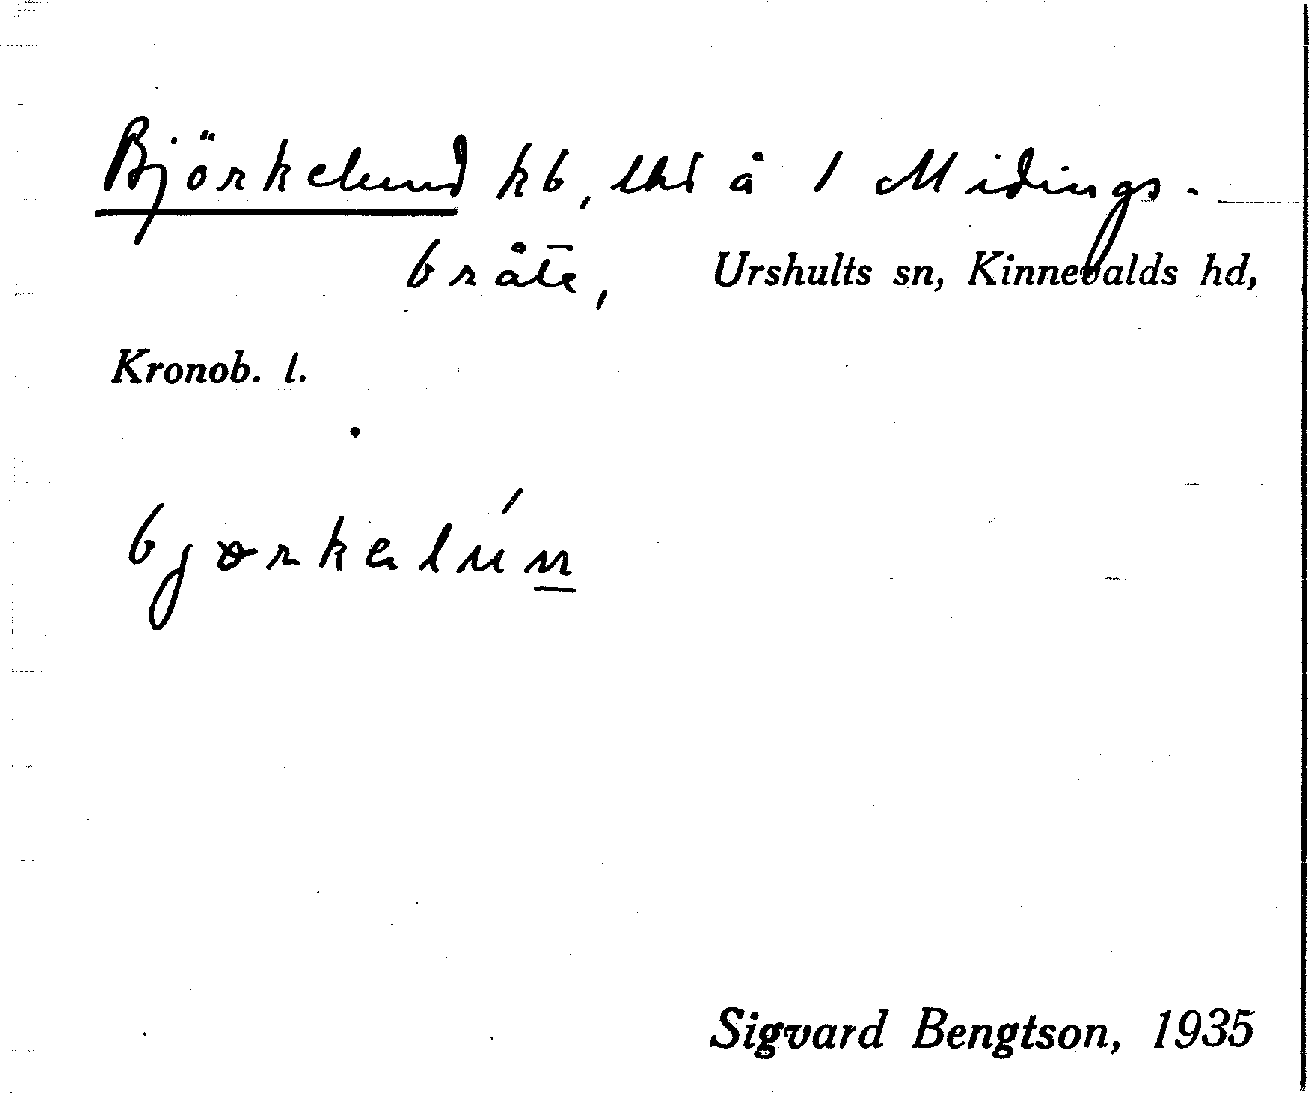 Björkelund hb, lhd å 1 Midings-
bråte, Urshults sn, Kinnevalds hd,
Kronob. l.
Sigvard Bengtson, 1935